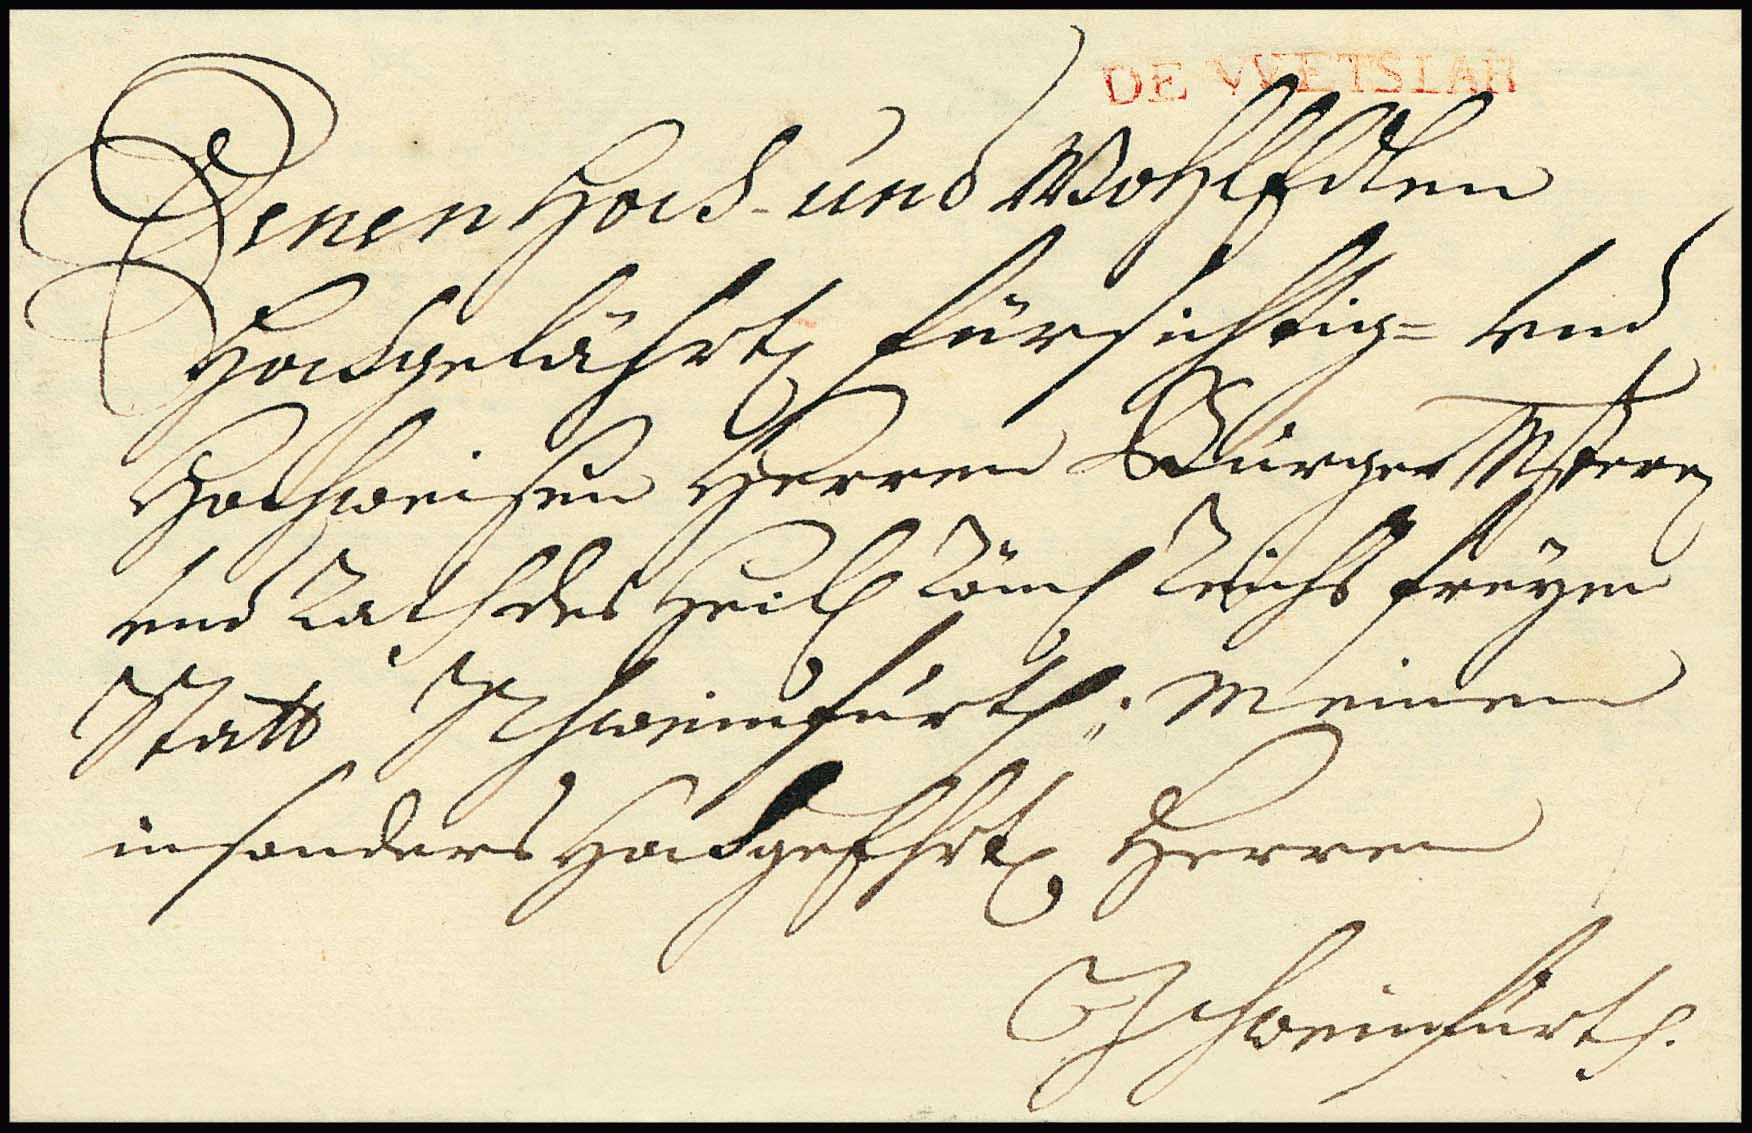 DE WETSLAR
Denen Hoch- und WohlEdlen
Hochgelährt, fürsichtig= und
Hochweisen Herren BürgerMstere,
und Rath des Heil. Röm. Reichs freyen
Statt Schweinfurth; Meinen
insonders Hochgeehrt. Herren
Schweinfurth.